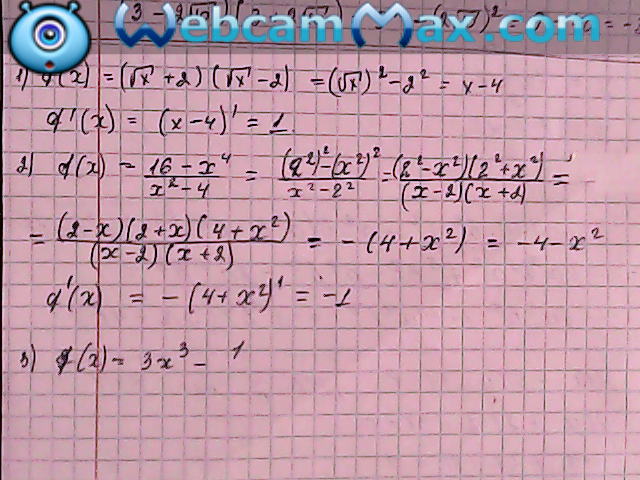 WebcamMax.com
1) f(x) = (√x + 2)(√x − 2) = (√x)² − 2² = x − 4
f'(x) = (x−4)' = 1
2) f(x) = (16 − x⁴)/(x² − 4) = ((2²)² − (x²)²)/(x² − 2²) = ((2² − x²)(2² + x²))/((x−2)(x+2)) =
= ((2−x)(2+x)(4+x²))/((x−2)(x+2)) = −(4+x²) = −4−x²
f'(x) = −(4+x²)' = −1
3) f(x) = 3x³ − 1